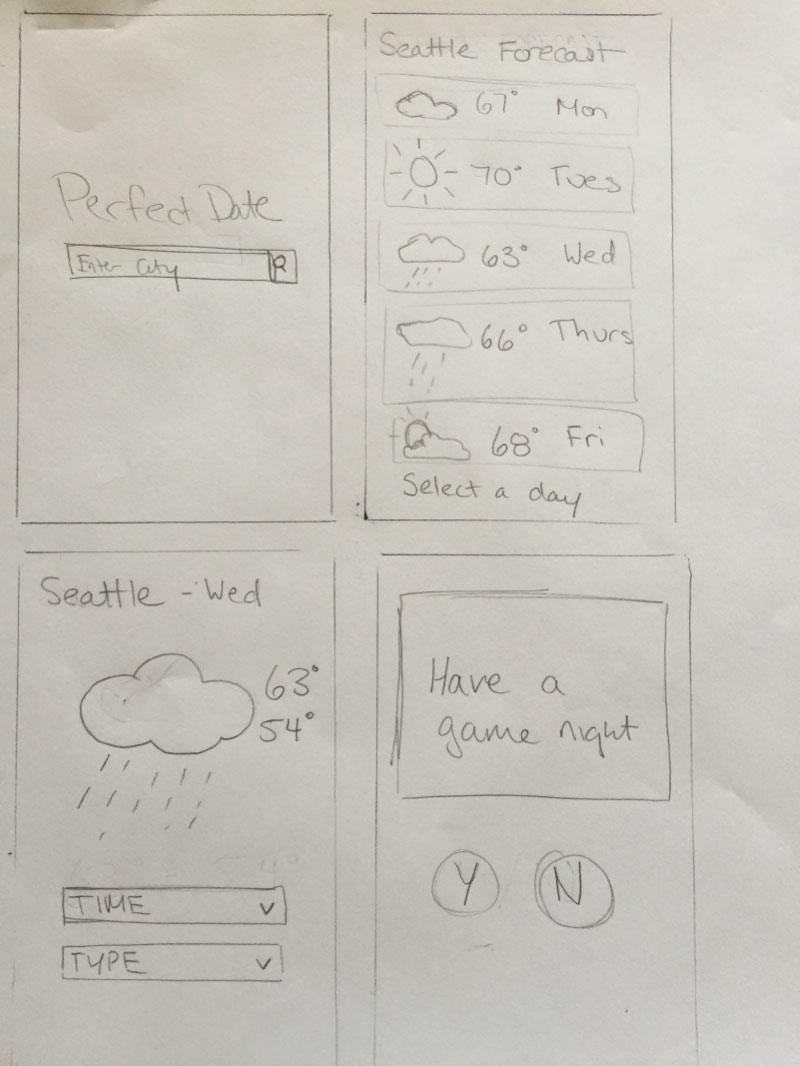 Perfect Date
Enter City
Seattle Forecast
67° Mon
70° Tues
63° Wed
66° Thurs
68° Fri
Select a day
Seattle - Wed
63°
54°
TIME
TYPE
Have a
game night
Y N